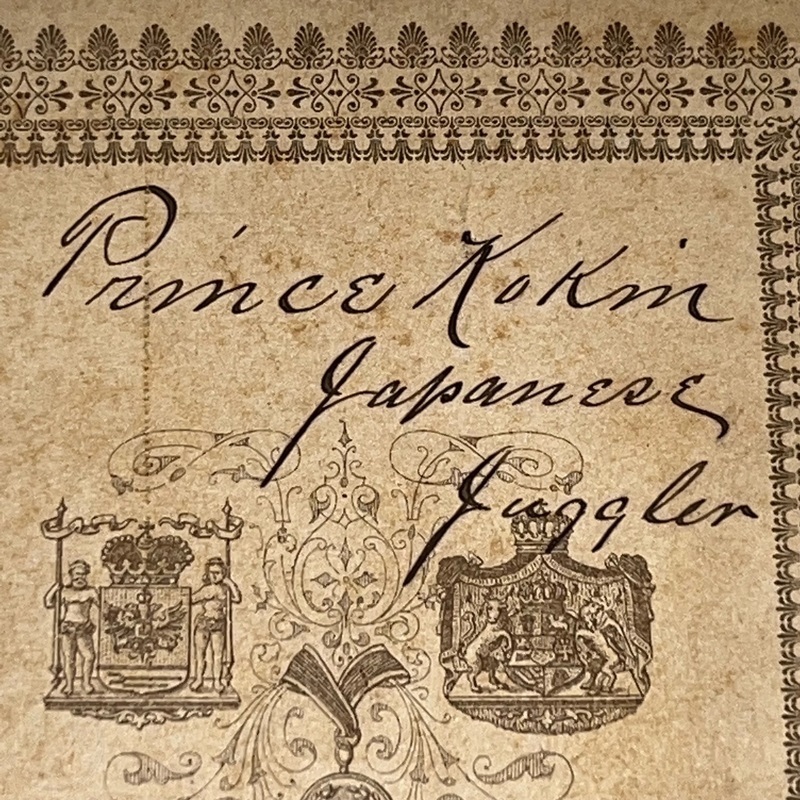 Prince Kokin
Japanese
Juggler